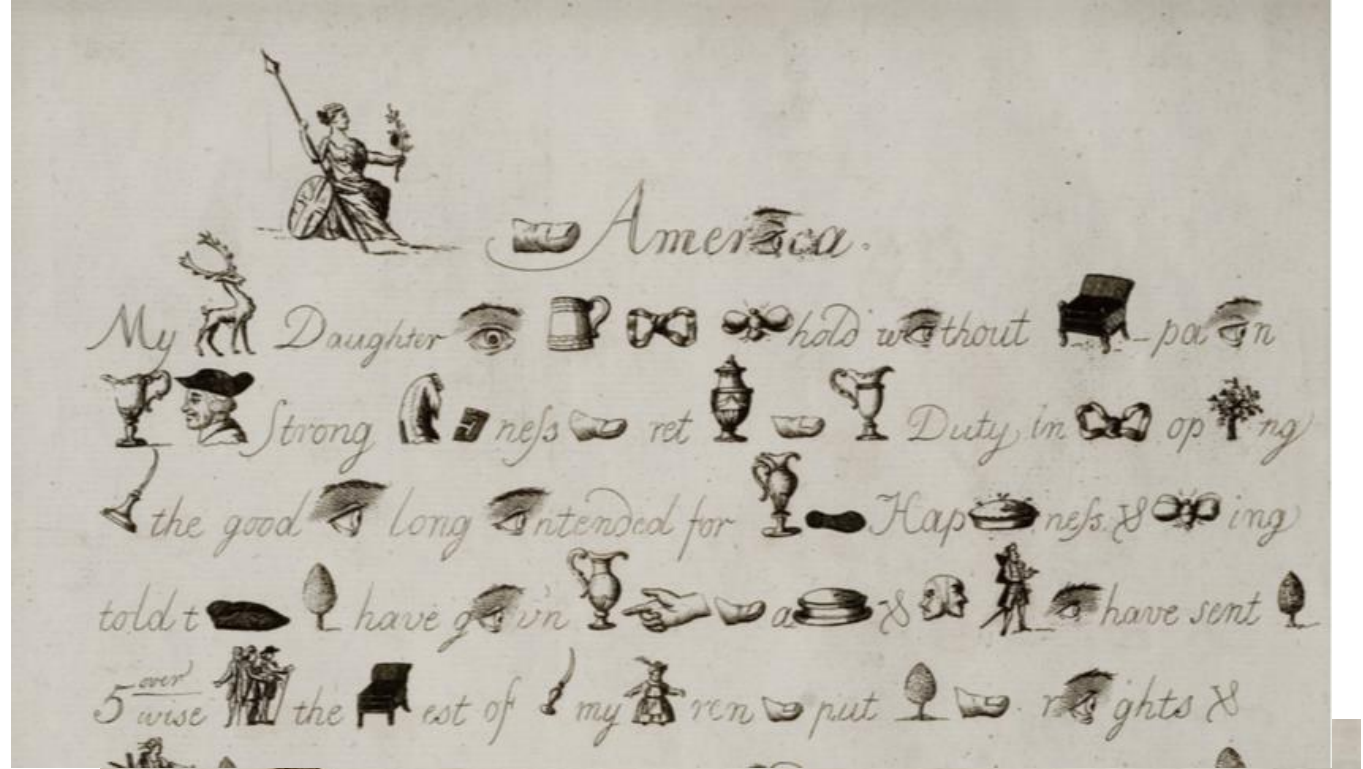 America.
My Daughter hold without pa n
Strong neſs ret Duty in op ng
the good long ntended for Hap neſs & ing
told t have g v'n a & have sent
5 over wise the est of my ren put r ghts &